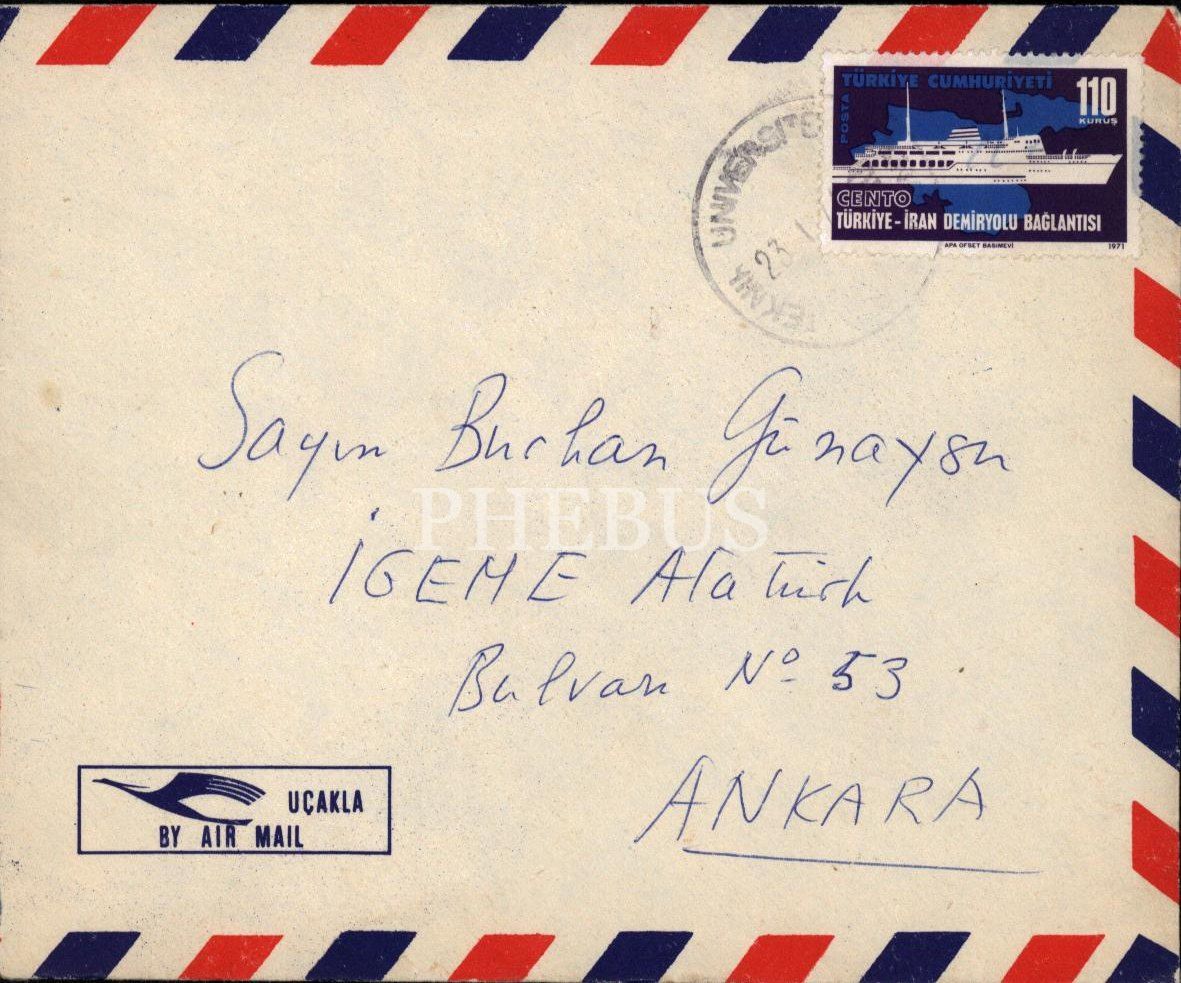 TÜRKİYE CUMHURİYETİ
POSTA
110
KURUŞ
CENTO
TÜRKİYE - İRAN DEMİRYOLU BAĞLANTISI
APA OFSET BASIMEVİ
1971
23
Sayın Burhan Günaysu
PHEBUS
İGEME Atatürk
Bulvarı Nº 53
ANKARA
UÇAKLA
BY AIR MAIL